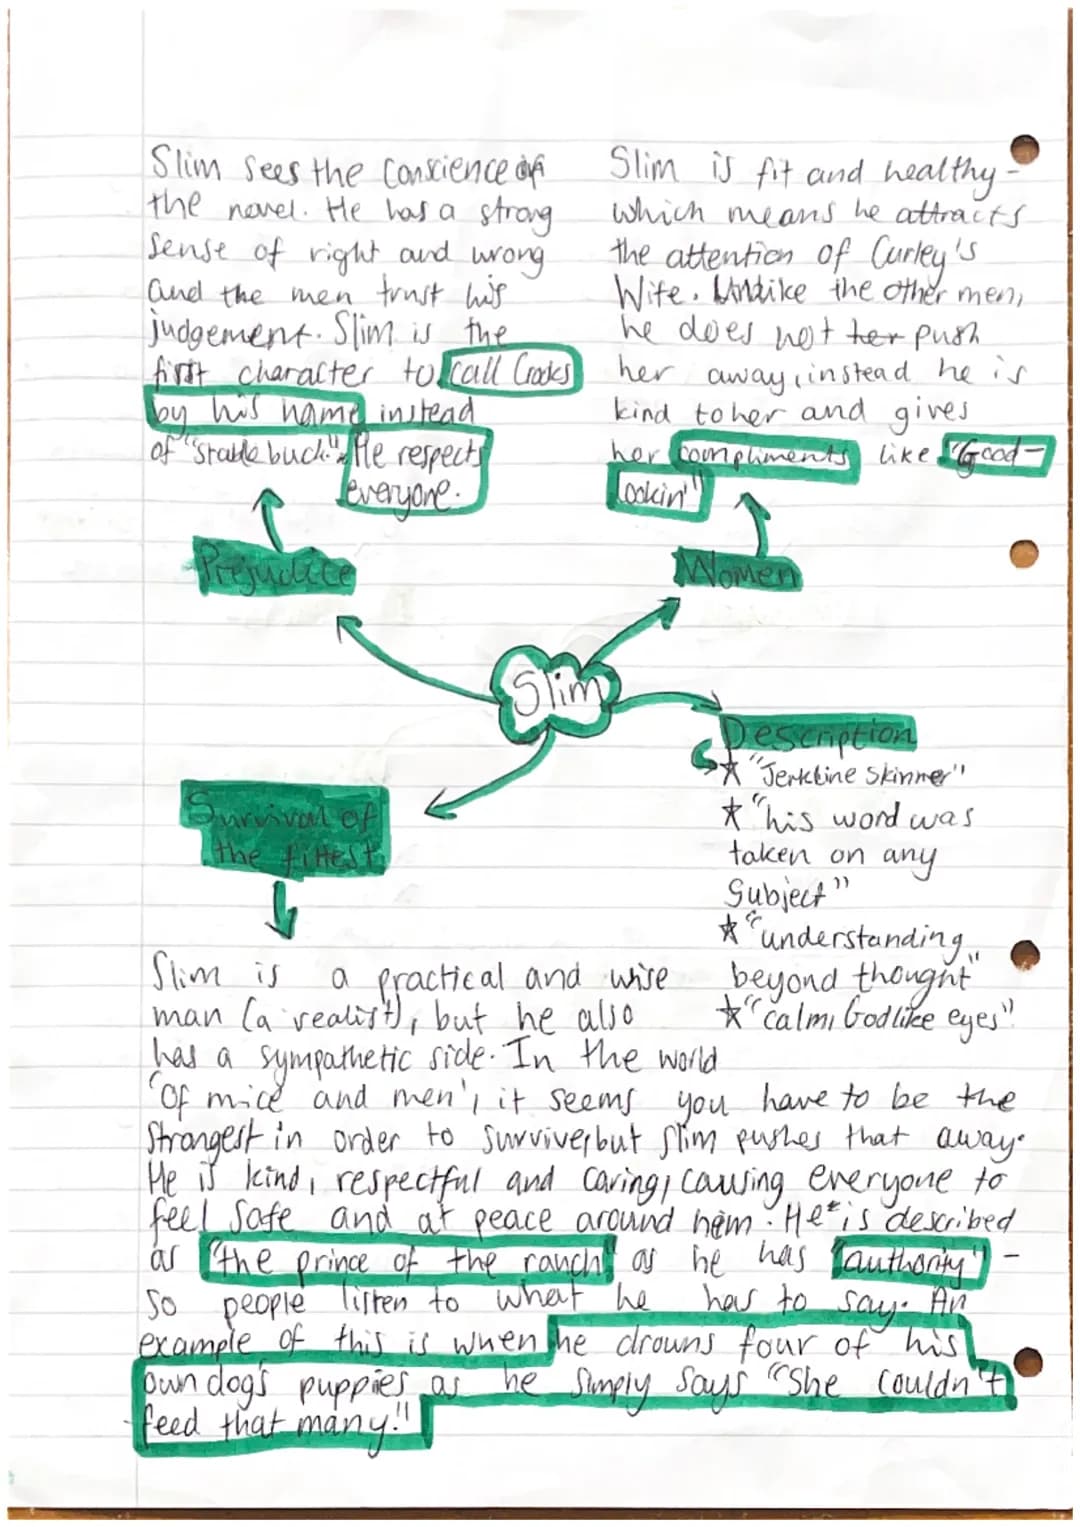 Slim sees the conscience of
the novel. He has a strong
sense of right and wrong
and the men trust his
judgement. Slim is the
first character to call Crooks
by his name instead
of "stable buck". He respects
everyone.
Prejudice
Slim is fit and healthy -
which means he attracts
the attention of Curley's
Wife. Unlike the other men,
he does not her push
her away, instead he is
kind to her and gives
her compliments like "Good-
lookin"
Women
Slim
Description
"Jerkline Skinner"
"his word was
taken on any
Subject"
"understanding
beyond thought"
"calm, Godlike eyes"
Survival of
the fittest
Slim is a practical and wise
man (a realist), but he also
has a sympathetic side. In the world
'Of mice and men', it seems you have to be the
strongest in order to survive, but Slim pushes that away.
He is kind, respectful and caring, causing everyone to
feel safe and at peace around him. He is described
as "the prince of the ranch" as he has "authority" -
so people listen to what he has to say. An
example of this is when he drowns four of his
own dog's puppies as he simply says "She couldn't
feed that many!"